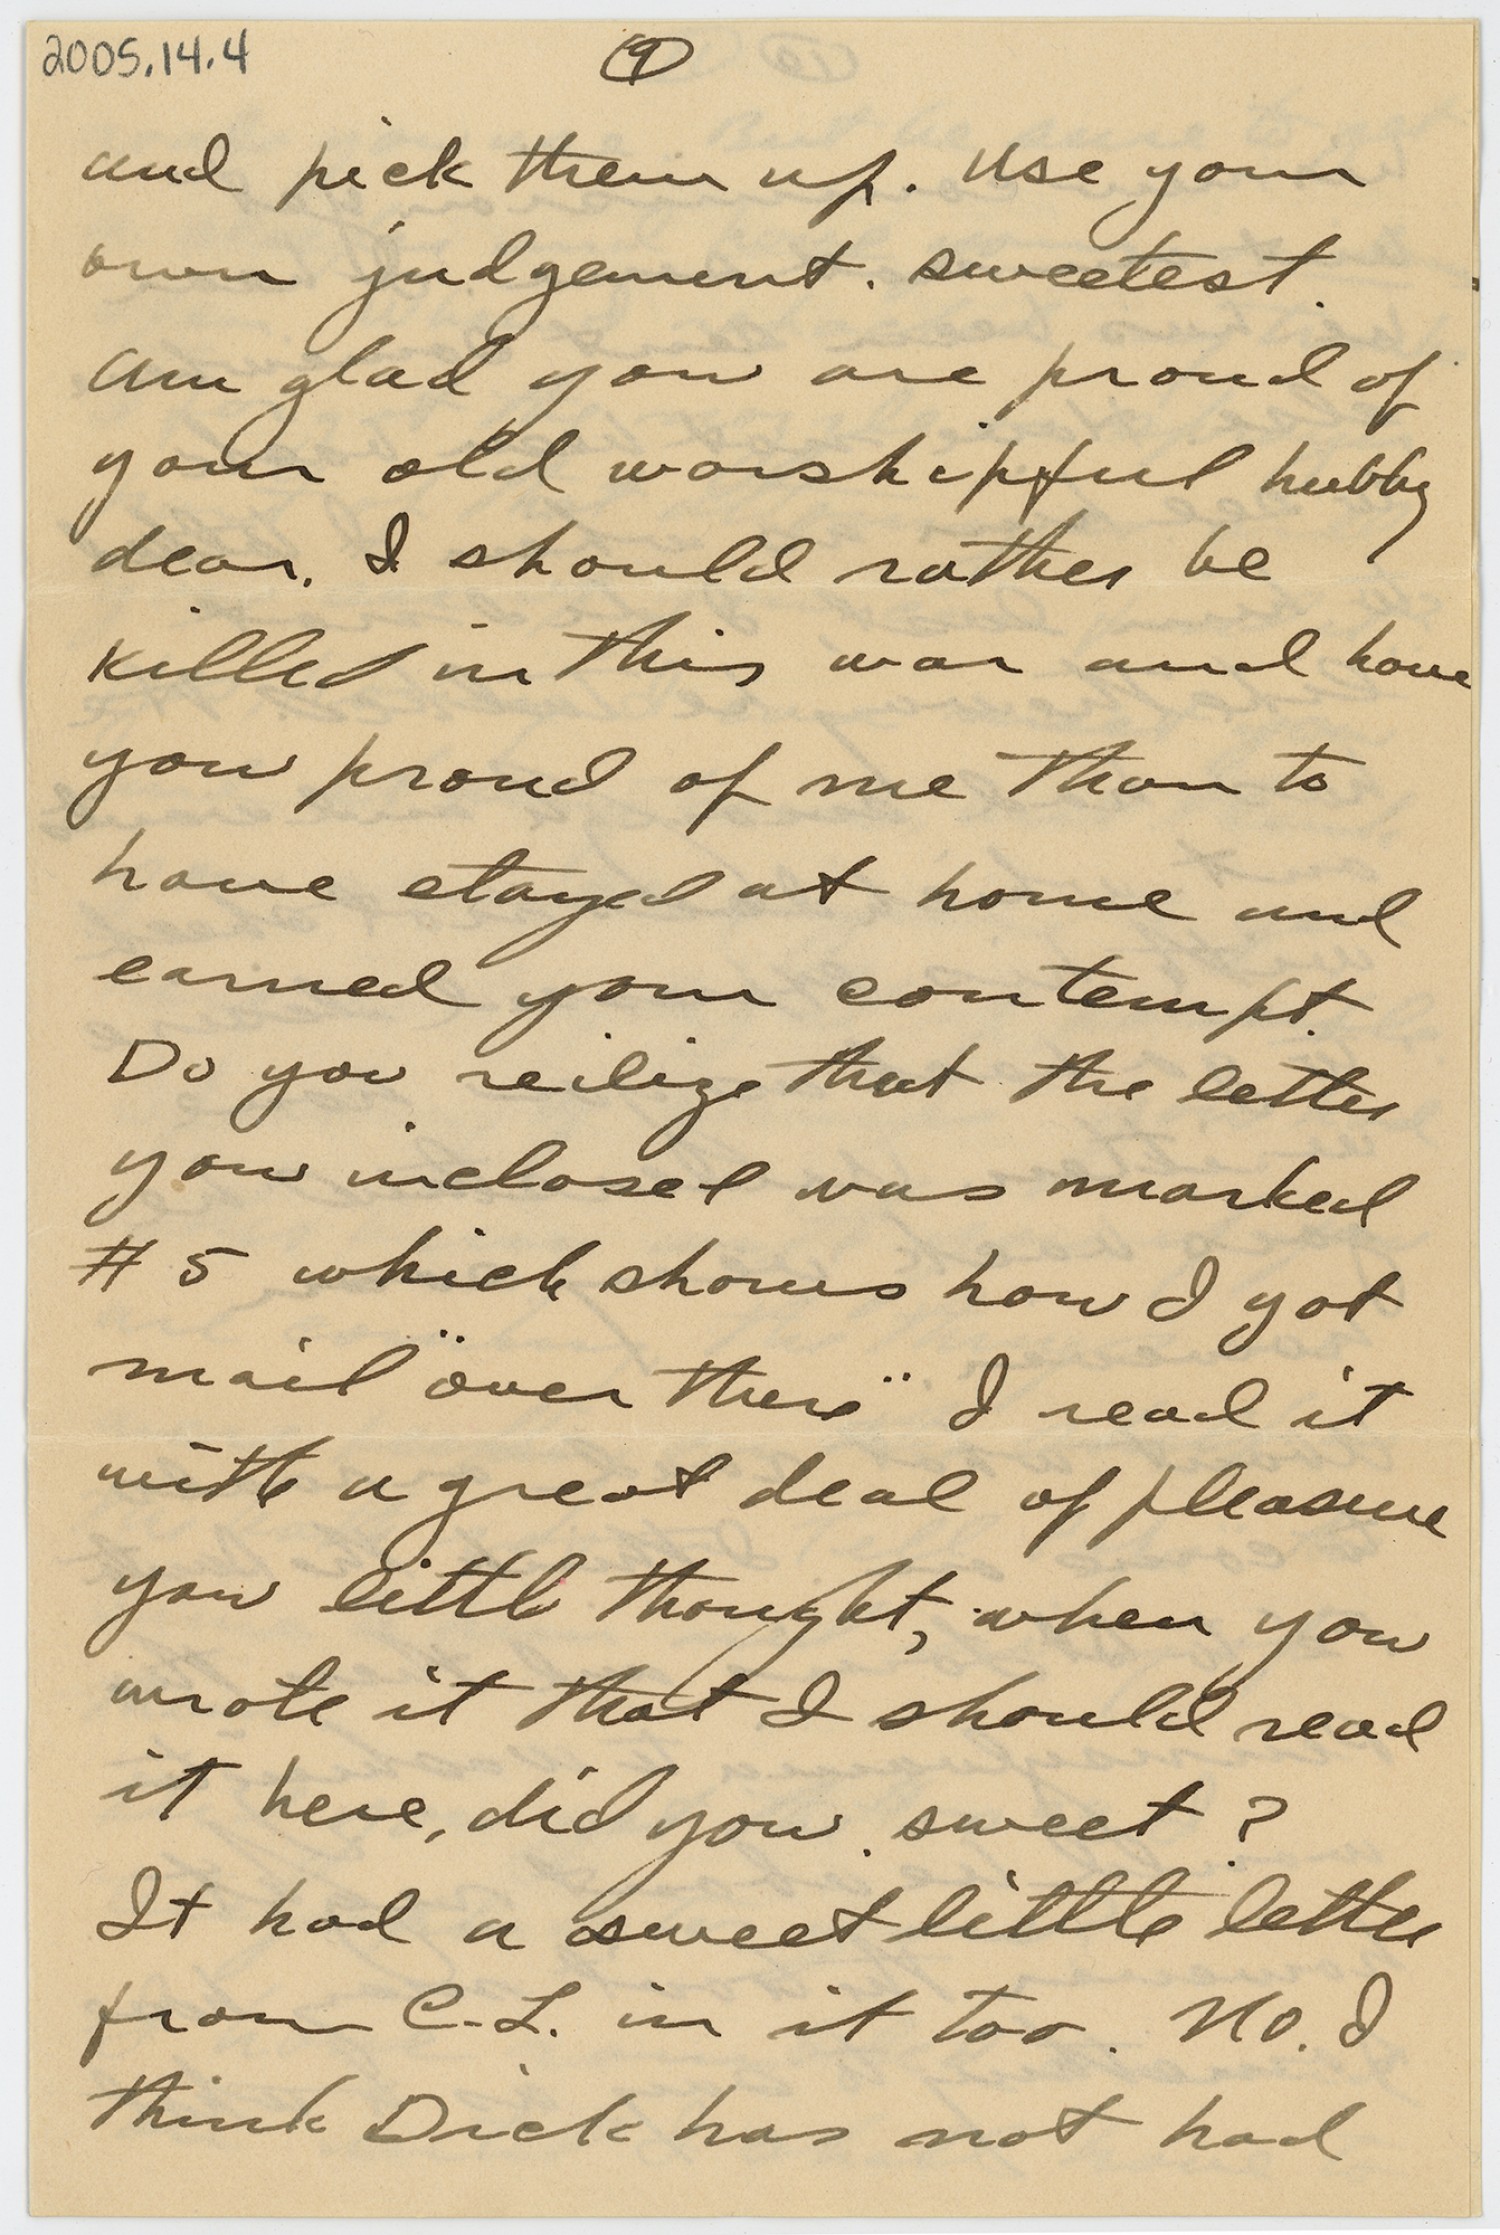 2005.14.4
9
and pick them up. Use your
own judgement. sweetest.
Am glad you are proud of
your old worshipful hubby
dear. I should rather be
killed in this war and have
you proud of me than to
have stayed at home and
earned your contempt.
Do you reilize that the letter
you inclosed was marked
# 5 which shows how I got
mail "over there" I read it
with a great deal of pleasure
you little thought, when you
wrote it that I should read
it here, did you. sweet?
It had a sweet little letter
from C.L. in it too. No. I
think Dick has not had